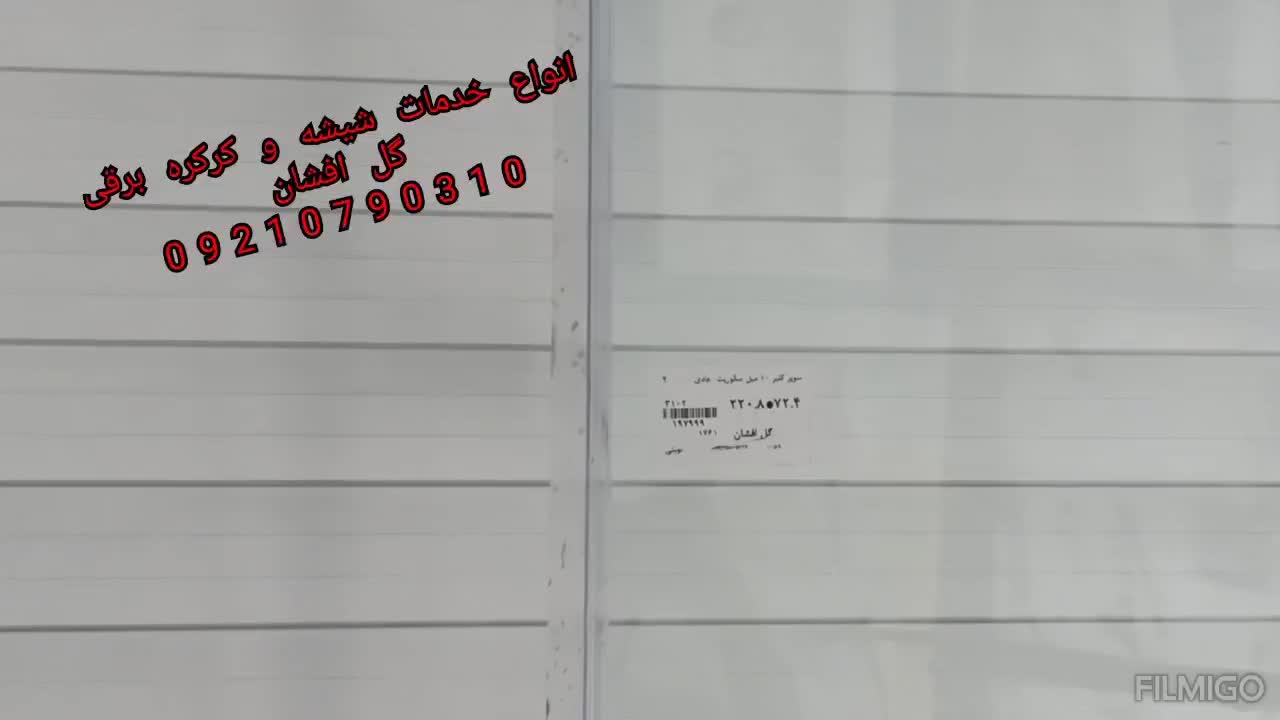 انواع خدمات شیشه و کرکره برقی
گل افشان
09210790310
سوپر کلیر ۱۰ میل سکوریت عادی ۲
۲۲۰.۸●۷۲.۴
۳۱۰۲
۱۹۷۹۹۹
گل افشان ۱۷۶۱
FILMIGO